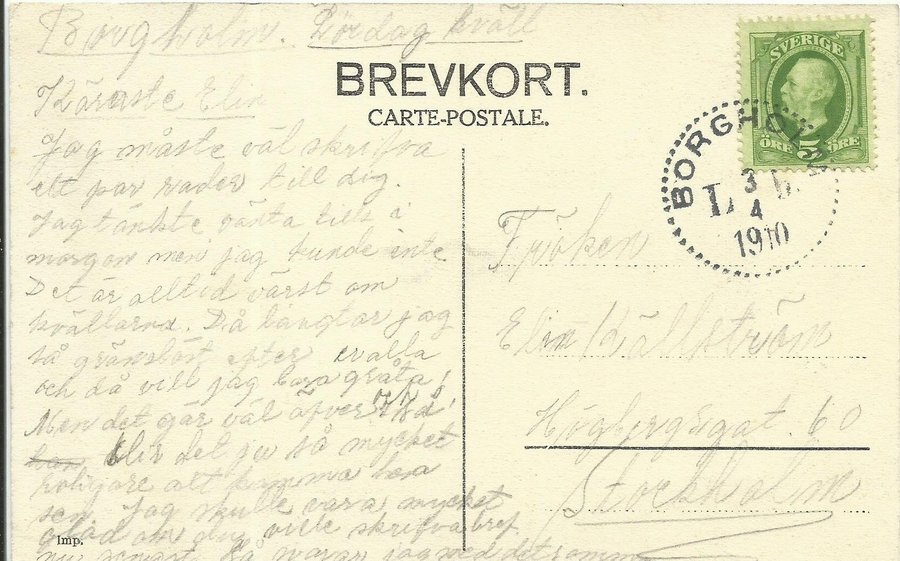 Borgholm. Lördag kväll
BREVKORT.
CARTE-POSTALE.
Käraste Elin
Jag måste väl skrifva
ett par rader till dig.
Jag tänkte vänta tills i
morgon men jag kunde inte
Det är alltid värst om
kvällarna. Då längtar jag
så gränslöst efter er alla
och då vill jag bara gråta!
Men det går väl öfver
blir det ju så mycket
roligare att komma hem
sen. Jag skulle vara mycket
glad om du ville skrifva bref
nu genast. Så svarar jag med det samma
Imp.
SVERIGE
ÖRE 5 ÖRE
BORGHOLM
3
4
1910
Fröken
Elin Källström
Högbergsgat. 60
Stockholm